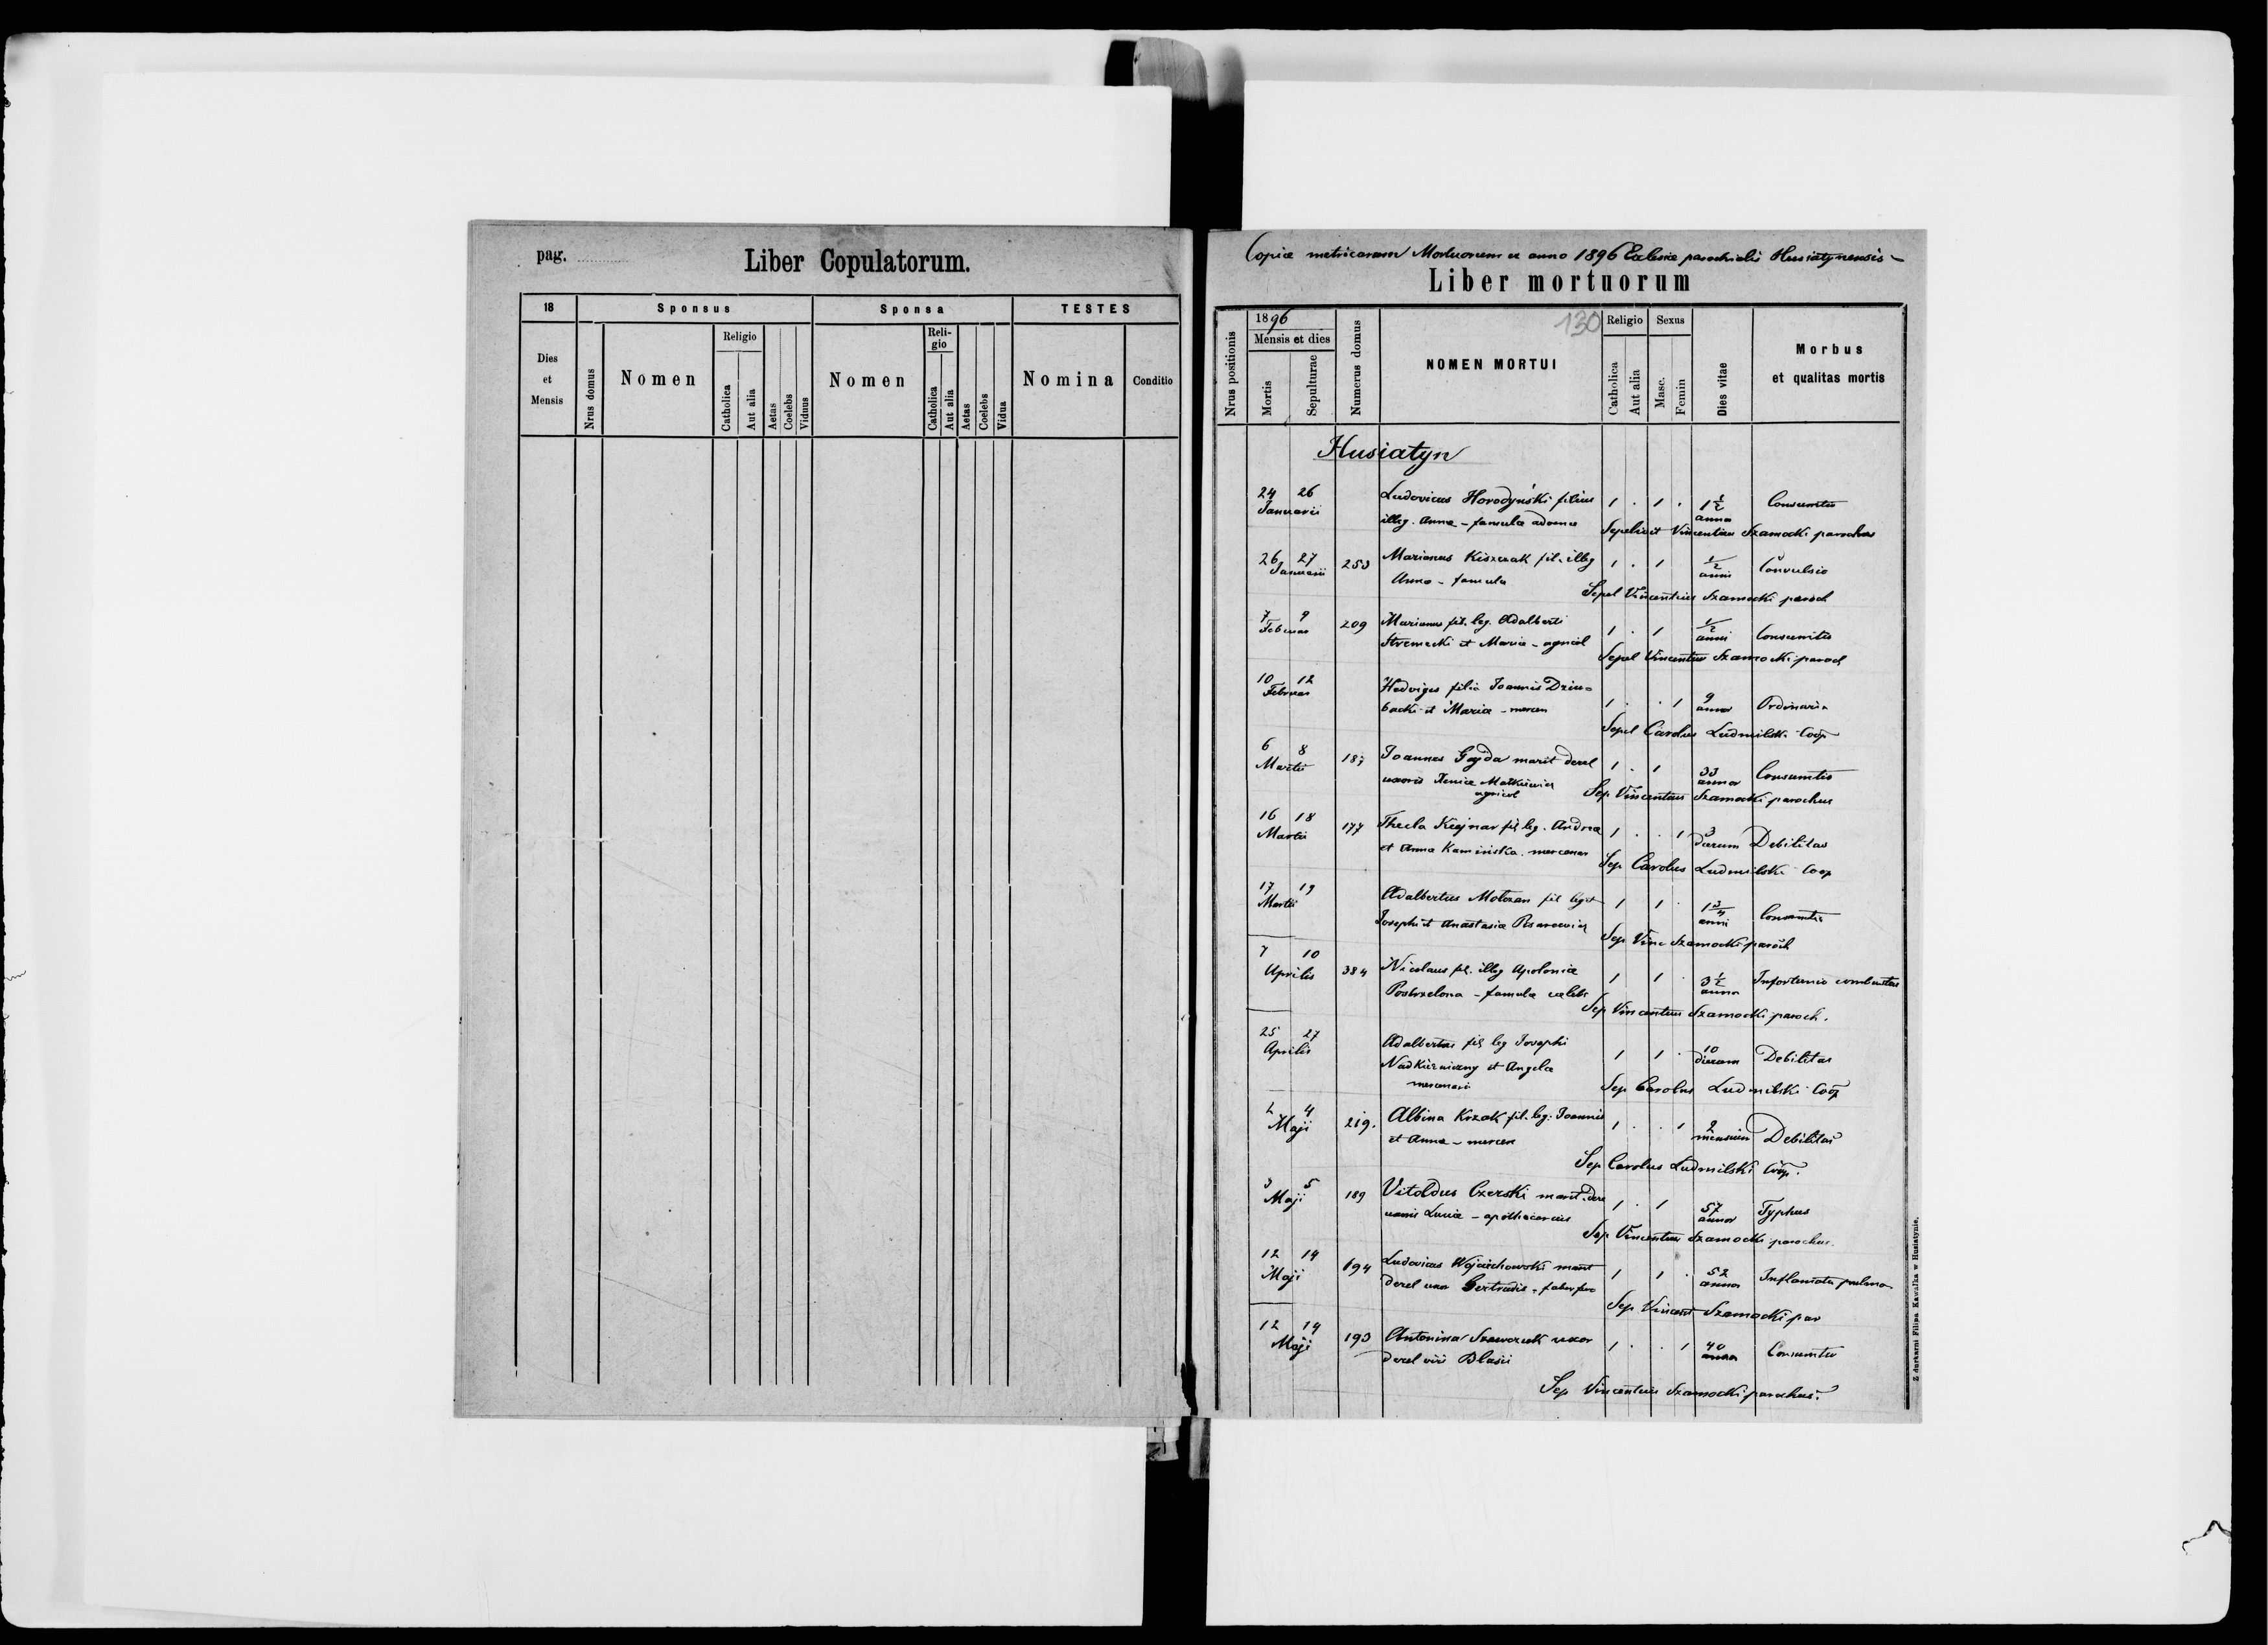 pag.
Liber Copulatorum.
18
Sponsus
Sponsa
TESTES
Dies et Mensis
Nrus domus
Nomen
Religio
Catholica
Aut alia
Aetas
Coelebs
Viduus
Nomen
Reli-
gio
Catholica
Aut alia
Aetas
Coelebs
Vidua
Nomina
Conditio
Copiæ metricarum Mortuorum ex anno 1896 Eclesiæ parochialis Husiatynensis
Liber mortuorum
130
Nrus positionis
1896
Mensis et dies
Mortis
Sepulturae
Numerus domus
NOMEN MORTUI
Religio
Catholica
Aut alia
Sexus
Masc.
Femin
Dies vitae
Morbus
et qualitas mortis
Husiatyn
24 26 Ludovicus Horodyński filius 1 . 1 . 1 1/2 Consumtio
Januarii illeg. Annæ - famulæ anno
Sepelivit Vincentius Szamocki parochus
26 27 253 Marianus Kiszczak fil. illeg 1 . 1 1/2 Convulsio
Januarii Annæ - famula anni
Sepel Vincentius Szamocki paroch
7 9 209 Marianus fil. leg. Adalberti 1 . 1 1/2 Consumtio
Februar et Maria - agricol anni
Sepel Vincentius Szamocki paroch
10 12 Hedvigis filia Joannis Dziu= 1 . . 1 9 Ordinaria
Februar backi et Maria - mercen annor
Sepel Carolus Ludmilski Coop
6 8 187 Joannes Gajda marit derel 1 . 1 33 Consumtio
Martii uxoris Xeniæ Matkiewicz annor
agricol
Sep. Vincentius Szamocki parochus
16 18 177 Thecla Kiejnar fil leg. Andreæ 1 . . 1 3 Debilitas
Martii et Anna Kamińska. mercenar dierum
Sep Carolus Ludmilski Coop
17 19 Adalbertus Motozan fil legit 1 1 . 1 3/4 Consumtio
Martii Josephi et Anastasiæ Pisarewicz anni
Sep Vinc Szamocki paroch
7 10 384 Nicolaus fil. illeg Apoloniæ 1 1 . 3 1/2 Infortunio combustus
Aprilis Postrzelona - famula anno
Sep Vincentius Szamocki paroch.
25 27 Adalbertus fil leg Josephi 1 1 . 10 Debilitas
Aprilis Nadkierniczny et Angela dierum
mercenari
Sep Carolus Ludmilski Coop
2 4 219. Albina Krzak fil. leg. Joannis 1 . . 1 2 Debilitas
Maji et Anna - mercen mensium
Sep Carolus Ludmilski Coop.
3 5 189 Vitoldus Czerski marit. dere 1 . 1 57 Typhus
Maji uxoris Luciæ - apothecarius annor
Sep Vincentius Szamocki parochus.
12 14 194 Ludovicus Wojciechowski marit 1 1 . 52 Inflamatio pulmo
Maji derel uxor Gertrudis - faber annor
Sep Vincent Szamocki par
12 14 193 Antonina Szewczuk uxor 1 . . 1 40 Consumtio
Maji derel viri Blasii annor
Sep Vincentius Szamocki parochus.
Z durkarni Filipa Kawalka w Husiatynie.